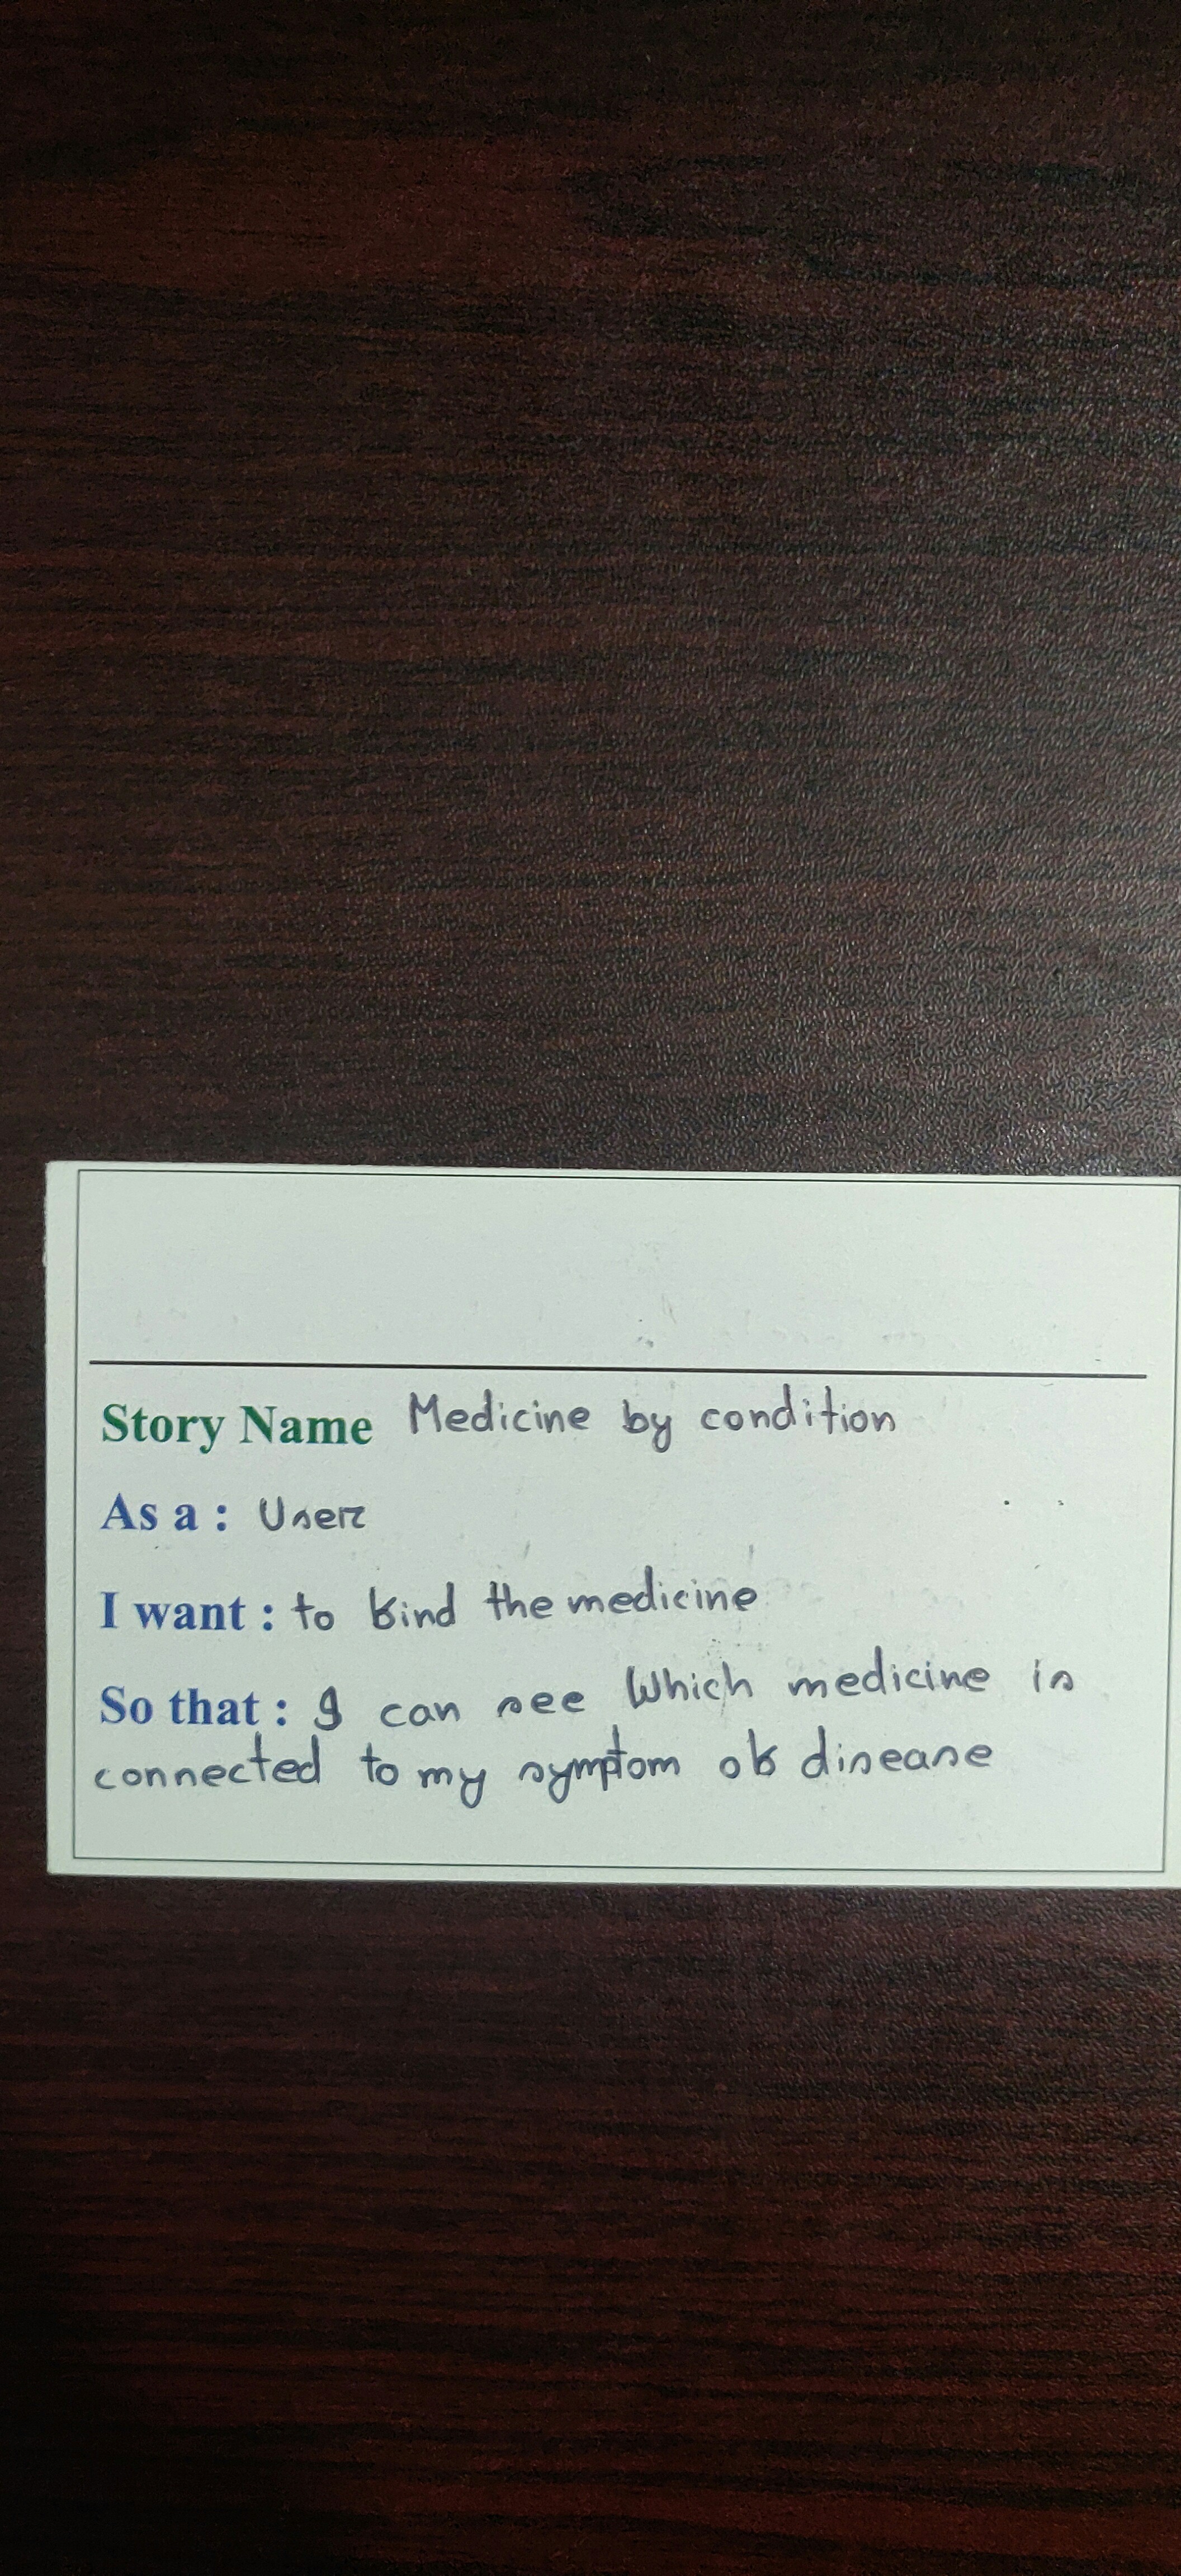 Story Name Medicine by condition
As a : User
I want : to find the medicine
So that : I can see Which medicine is
connected to my symptom of disease